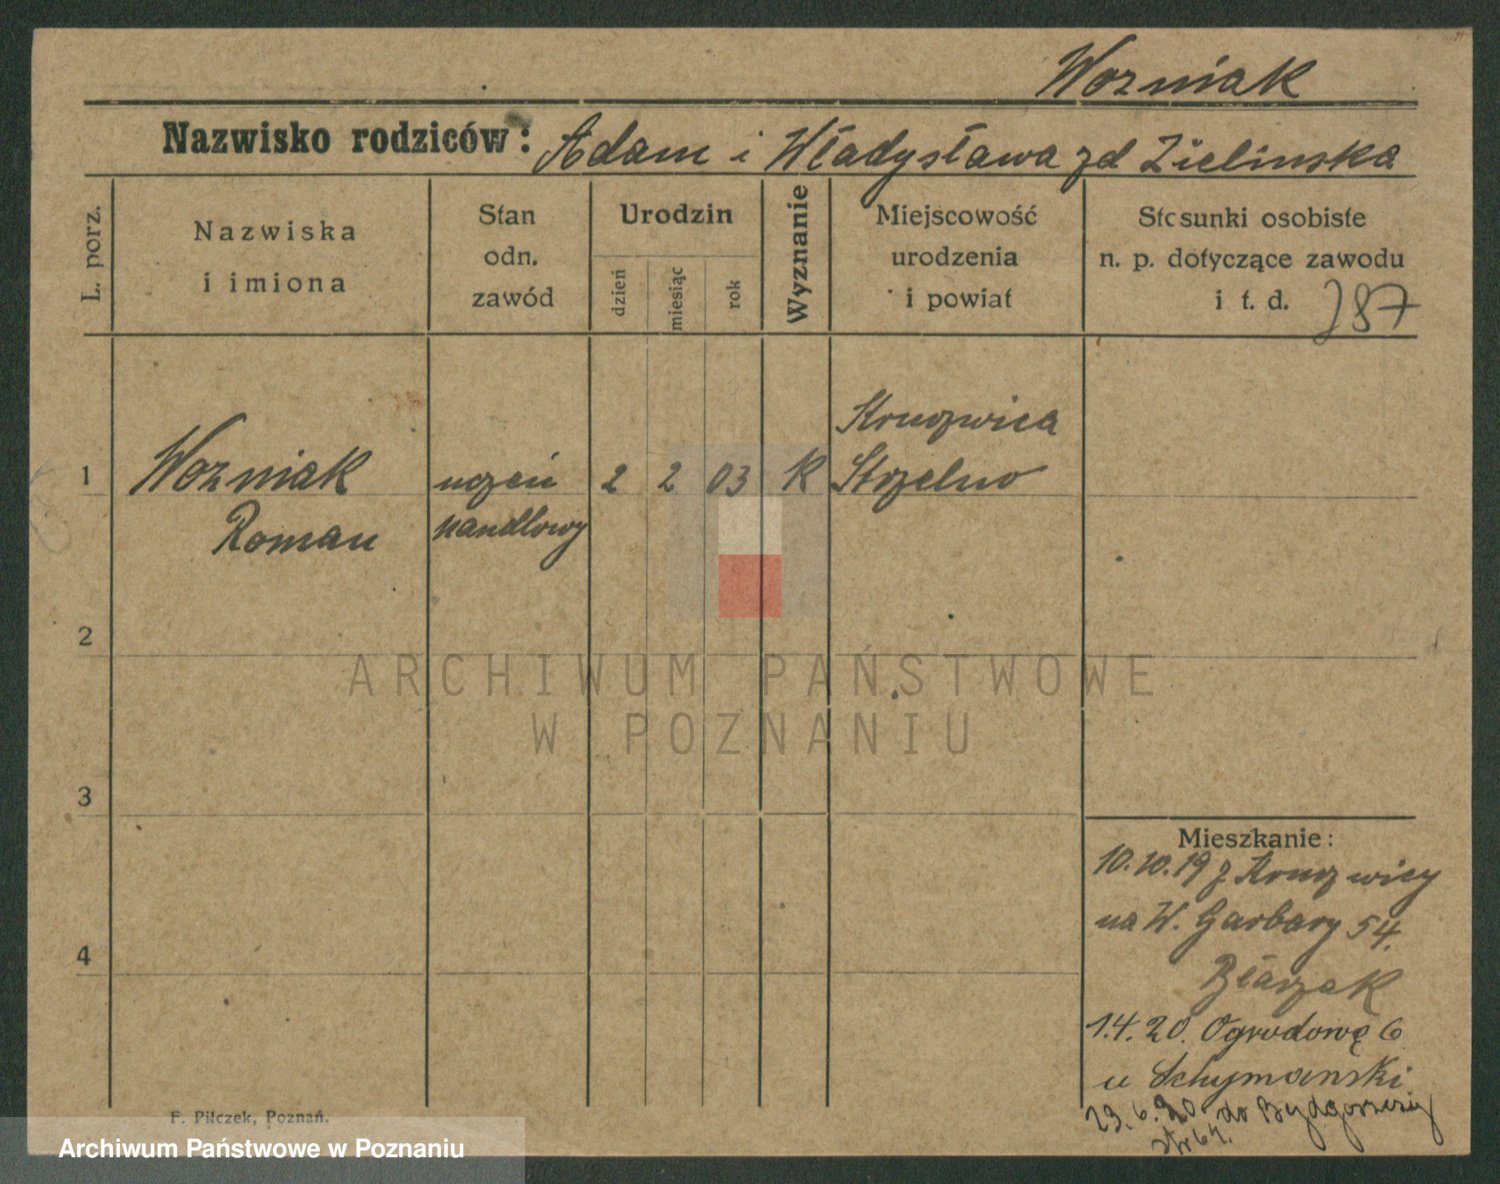 Wozniak
Nazwisko rodziców: Adam i Władysława zd Zielinska
L. porz.
Nazwiska
i imiona
Stan
odn.
zawód
Urodzin
dzień
miesiąc
rok
Wyznanie
Miejscowość
urodzenia
i powiat
Stosunki osobiste
n. p. dotyczące zawodu
i t. d. 787
1 Wozniak uczeń 2 2 03 K Strzelno
Roman handlowy
2
3
4
Mieszkanie:
10.10.19 z
na W. Garbary 54.
1.4.20. Ogrodowę 6
u Schymanski
23.6.20 do Bydgoszczy
F. Pilczek, Poznań.
ARCHIWUM PAŃSTWOWE
W POZNANIU
Archiwum Państwowe w Poznaniu